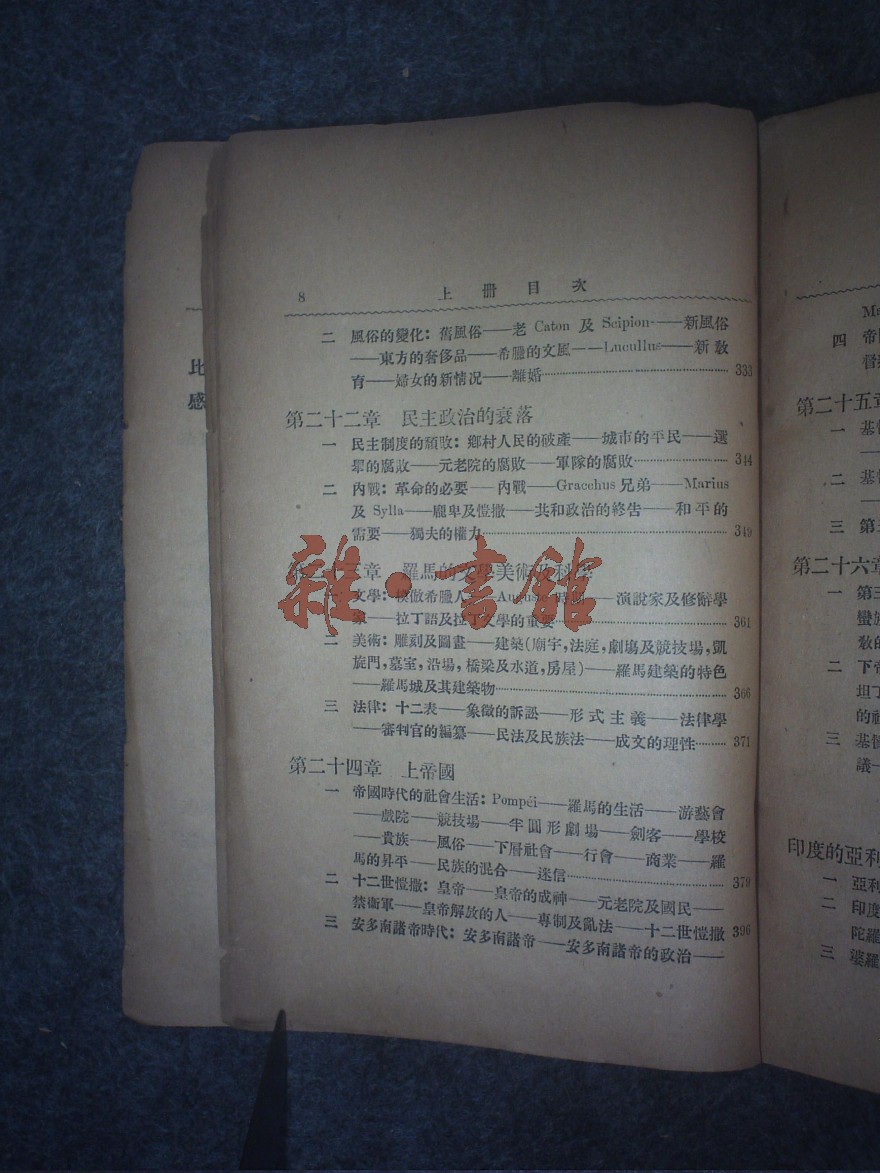 8 上册目次
二 風俗的變化：舊風俗——老 Caton 及 Scipion——新風俗
——東方的奢侈品——希臘的文風——Lucullus——新敎
育——婦女的新情況——離婚……333
第二十二章 民主政治的衰落
一 民主制度的頹敗：鄉村人民的破產——城市的平民——選
舉的腐敗——元老院的腐敗——軍隊的腐敗……344
二 內戰：革命的必要——內戰——Gracchus 兄弟——Marius
及 Sylla——龐卑及愷撒——共和政治的終告——和平的
需要——獨夫的權力……349
第二十三章 羅馬的文學美術及科學
一 文學：模倣希臘人——Auguste 時代——演說家及修辭學
家——拉丁語及拉丁文學的重要……361
二 美術：雕刻及圖畫——建築(廟宇,法庭,劇場及競技場,凱
旋門,墓室,浴場,橋梁及水道,房屋)——羅馬建築的特色
——羅馬城及其建築物……366
三 法律：十二表——象徵的訴訟——形式主義——法律學
——審判官的編纂——民法及民族法——成文的理性……371
第二十四章 上帝國
一 帝國時代的社會生活：Pompéi——羅馬的生活——游藝會
——戲院——競技場——半圓形劇場——劍客——學校
——貴族——風俗——下層社會——行會——商業——羅
馬的昇平——民族的混合——迷信……379
二 十二世愷撒：皇帝——皇帝的成神——元老院及國民——
禁衞軍——皇帝解放的人——專制及亂法——十二世愷撒 396
三 安多南諸帝時代：安多南諸帝——安多南諸帝的政治——
比
感
Ma
四 帝
第二十五章
一 基
二 基
三 第
第二十六章
一 第三
蠻族
敎的
二 下帝
坦丁
的社
三 基
議一
印度的亞利
一 亞利
二 印度
陀羅
三 婆羅
雜·書館